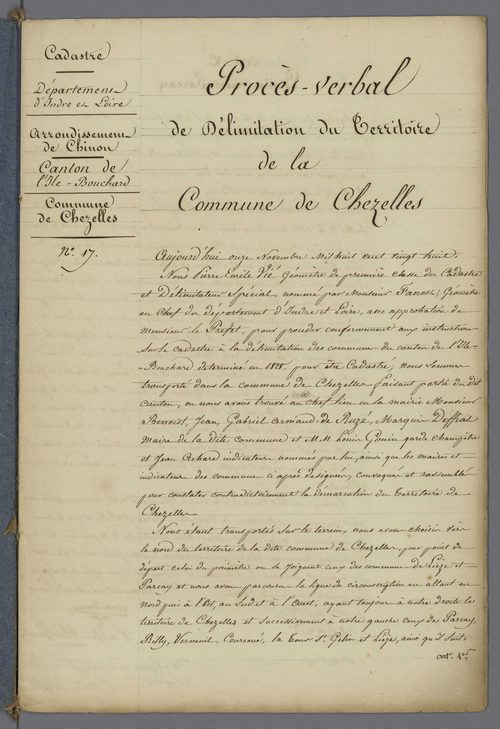 Cadastre
Département
d'Indre et Loire
Arrondissement
de Chinon
Canton de
l'Ile-Bouchard
Commune
de Chezelles
N.º 17.
Procès-verbal
de Délimitation du Territoire
de la
Commune de Chezelles
Aujourd'hui onze Novembre Mil huit cent vingt huit.
Nous Pierre Emile Vié Géomètre de première classe du Cadastre
et Délimitateur Spécial, nommé par Monsieur Géomètre
en Chef du département d'Indre et Loire, avec approbation de
Monsieur le Préfet, pour procéder conformément aux instructions
sur le cadastre à la délimitation des communes du canton de l'Ile-
Bouchard déterminé en 1828, pour être Cadastré, nous sommes
transporté dans la commune de Chezelles faisant partie du dit
canton, ou nous avons trouvé au chef lieu ou la mairie Monsieur
Benoist, Jean, Gabriel Armand-de Ruzé, Marquis Deffiat
Maire de la dite commune et M.M. Louis garde champêtre
et Jean indicateur nommés par lui, ainsi que les maires et
indicateurs des communes ci après désignées, convoqués et rassemblés
pour constater contradictoirement la démarcation du territoire de
Chezelles
Nous étant transportés sur le terrain, nous avons choisi vers
le nord du territoire de la dite commune de Chezelles, pour point de
départ celui du périmètre ou se joignent ceux des communes de Lièze et
Parçay et nous avons parcouru la ligne de circonscription en allant au
nord puis à l'Est, au Sud et à l'Ouest, ayant toujours à notre droite le
territoire de Chezelles et successivement à notre gauche ceux de Parçay,
Rilly, Verneuil, Courcoué, la Tour St. Gelin et Lièze, ainsi qu'il suit.
art. 1er